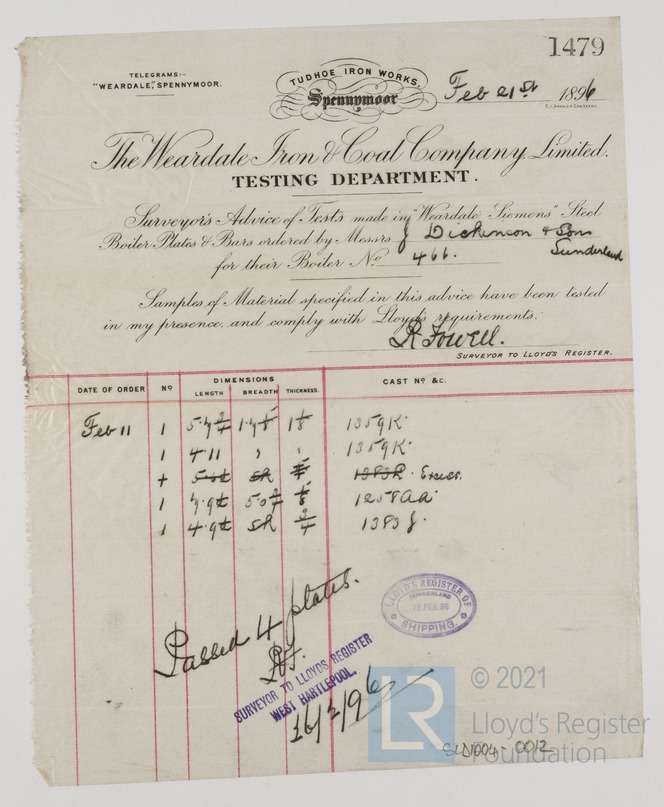 1479
TELEGRAMS:-
"WEARDALE," SPENNYMOOR.
TUDHOE IRON WORKS,
Spennymoor
Feb 21st 1896
The Weardale Iron & Coal Company, Limited.
TESTING DEPARTMENT.
Surveyor's Advice of Tests made in "Weardale Siemens" Steel
Boiler Plates & Bars ordered by Messrs J Dickinson & Sons
Sunderland
for their Boiler No 466.
Samples of Material specified in this advice have been tested
in my presence, and comply with Lloyd's requirements.
R Fowell.
SURVEYOR TO LLOYD'S REGISTER.
DATE OF ORDER No DIMENSIONS CAST No &c.
LENGTH BREADTH THICKNESS.
Feb 11 1 1359K
1 4·11 " " 1359K
Excess.
1 1258AA
1 SR 3/4 1383J
Passed 4 plates.
RF.
SURVEYOR TO LLOYDS REGISTER
WEST HARTLEPOOL.
26/2/96
LLOYD'S REGISTER OF
SUNDERLAND
FEB. 96
SHIPPING.
LR © 2021
Lloyd's Register
Foundation
SLD1004-0012